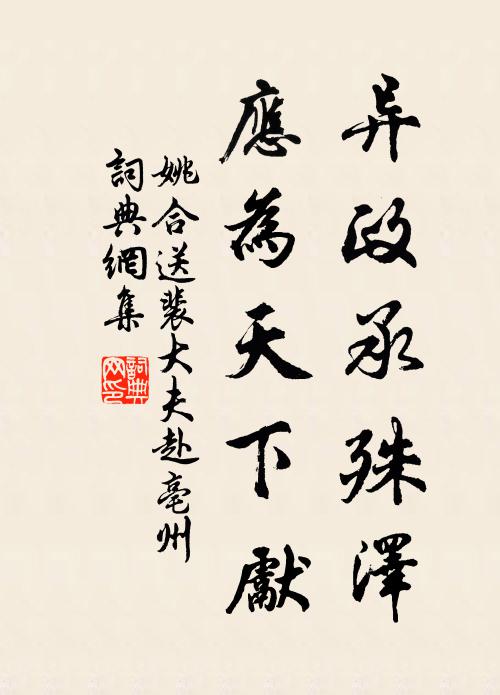 异政承殊澤
應為天下獻
姚合送裴大夫赴亳州
詞典網集
詞典网印